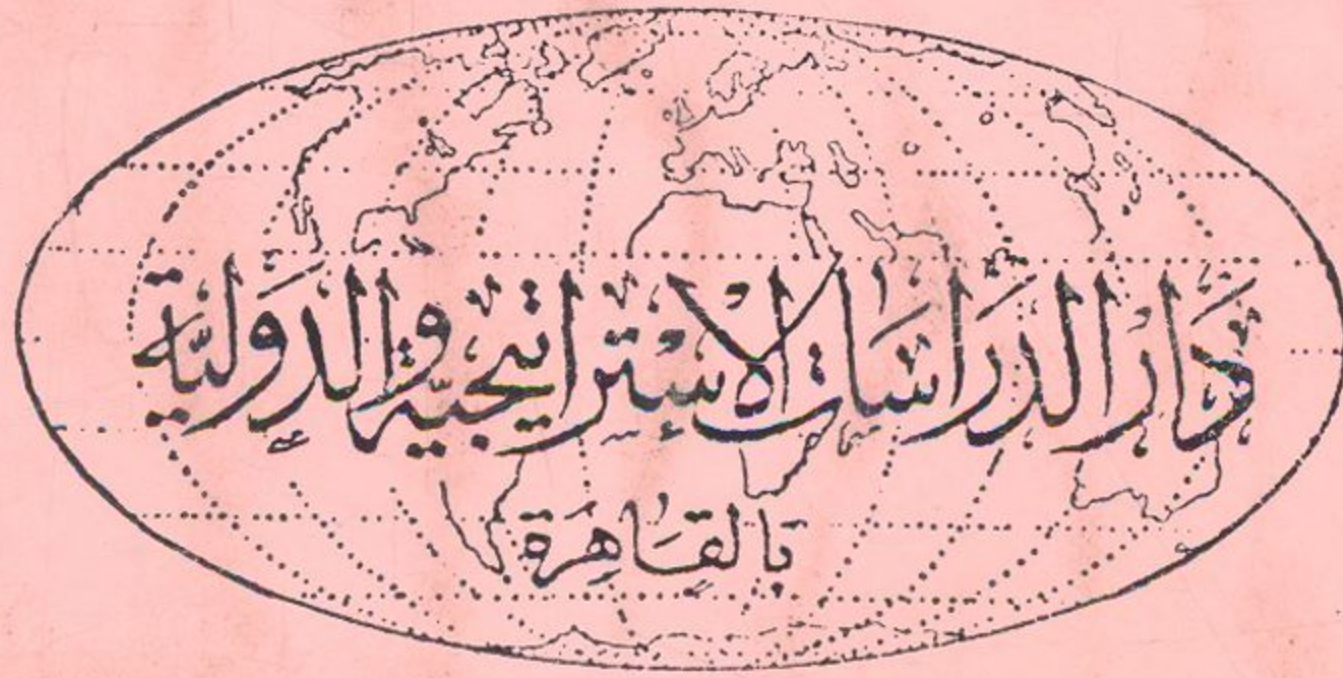 دَار الدّرَاسَات الإستراتيجيّة والدَوليّة
بالقَاهِرَة